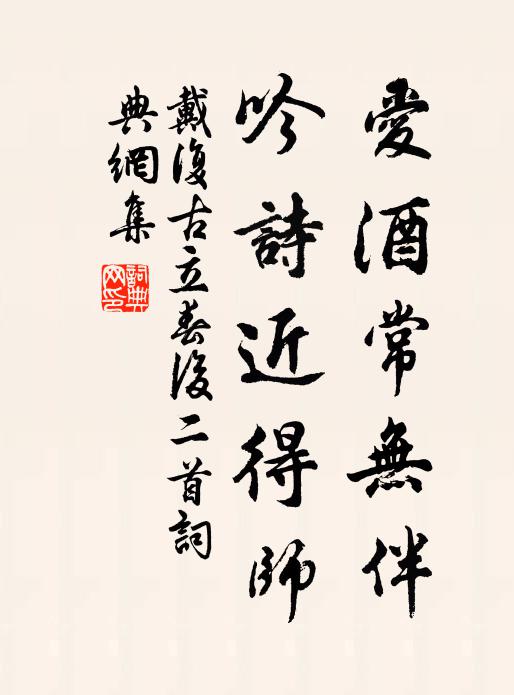 愛酒常無伴
吟詩近得師
戴復古立春後二首詞
典網集
詞典
网印